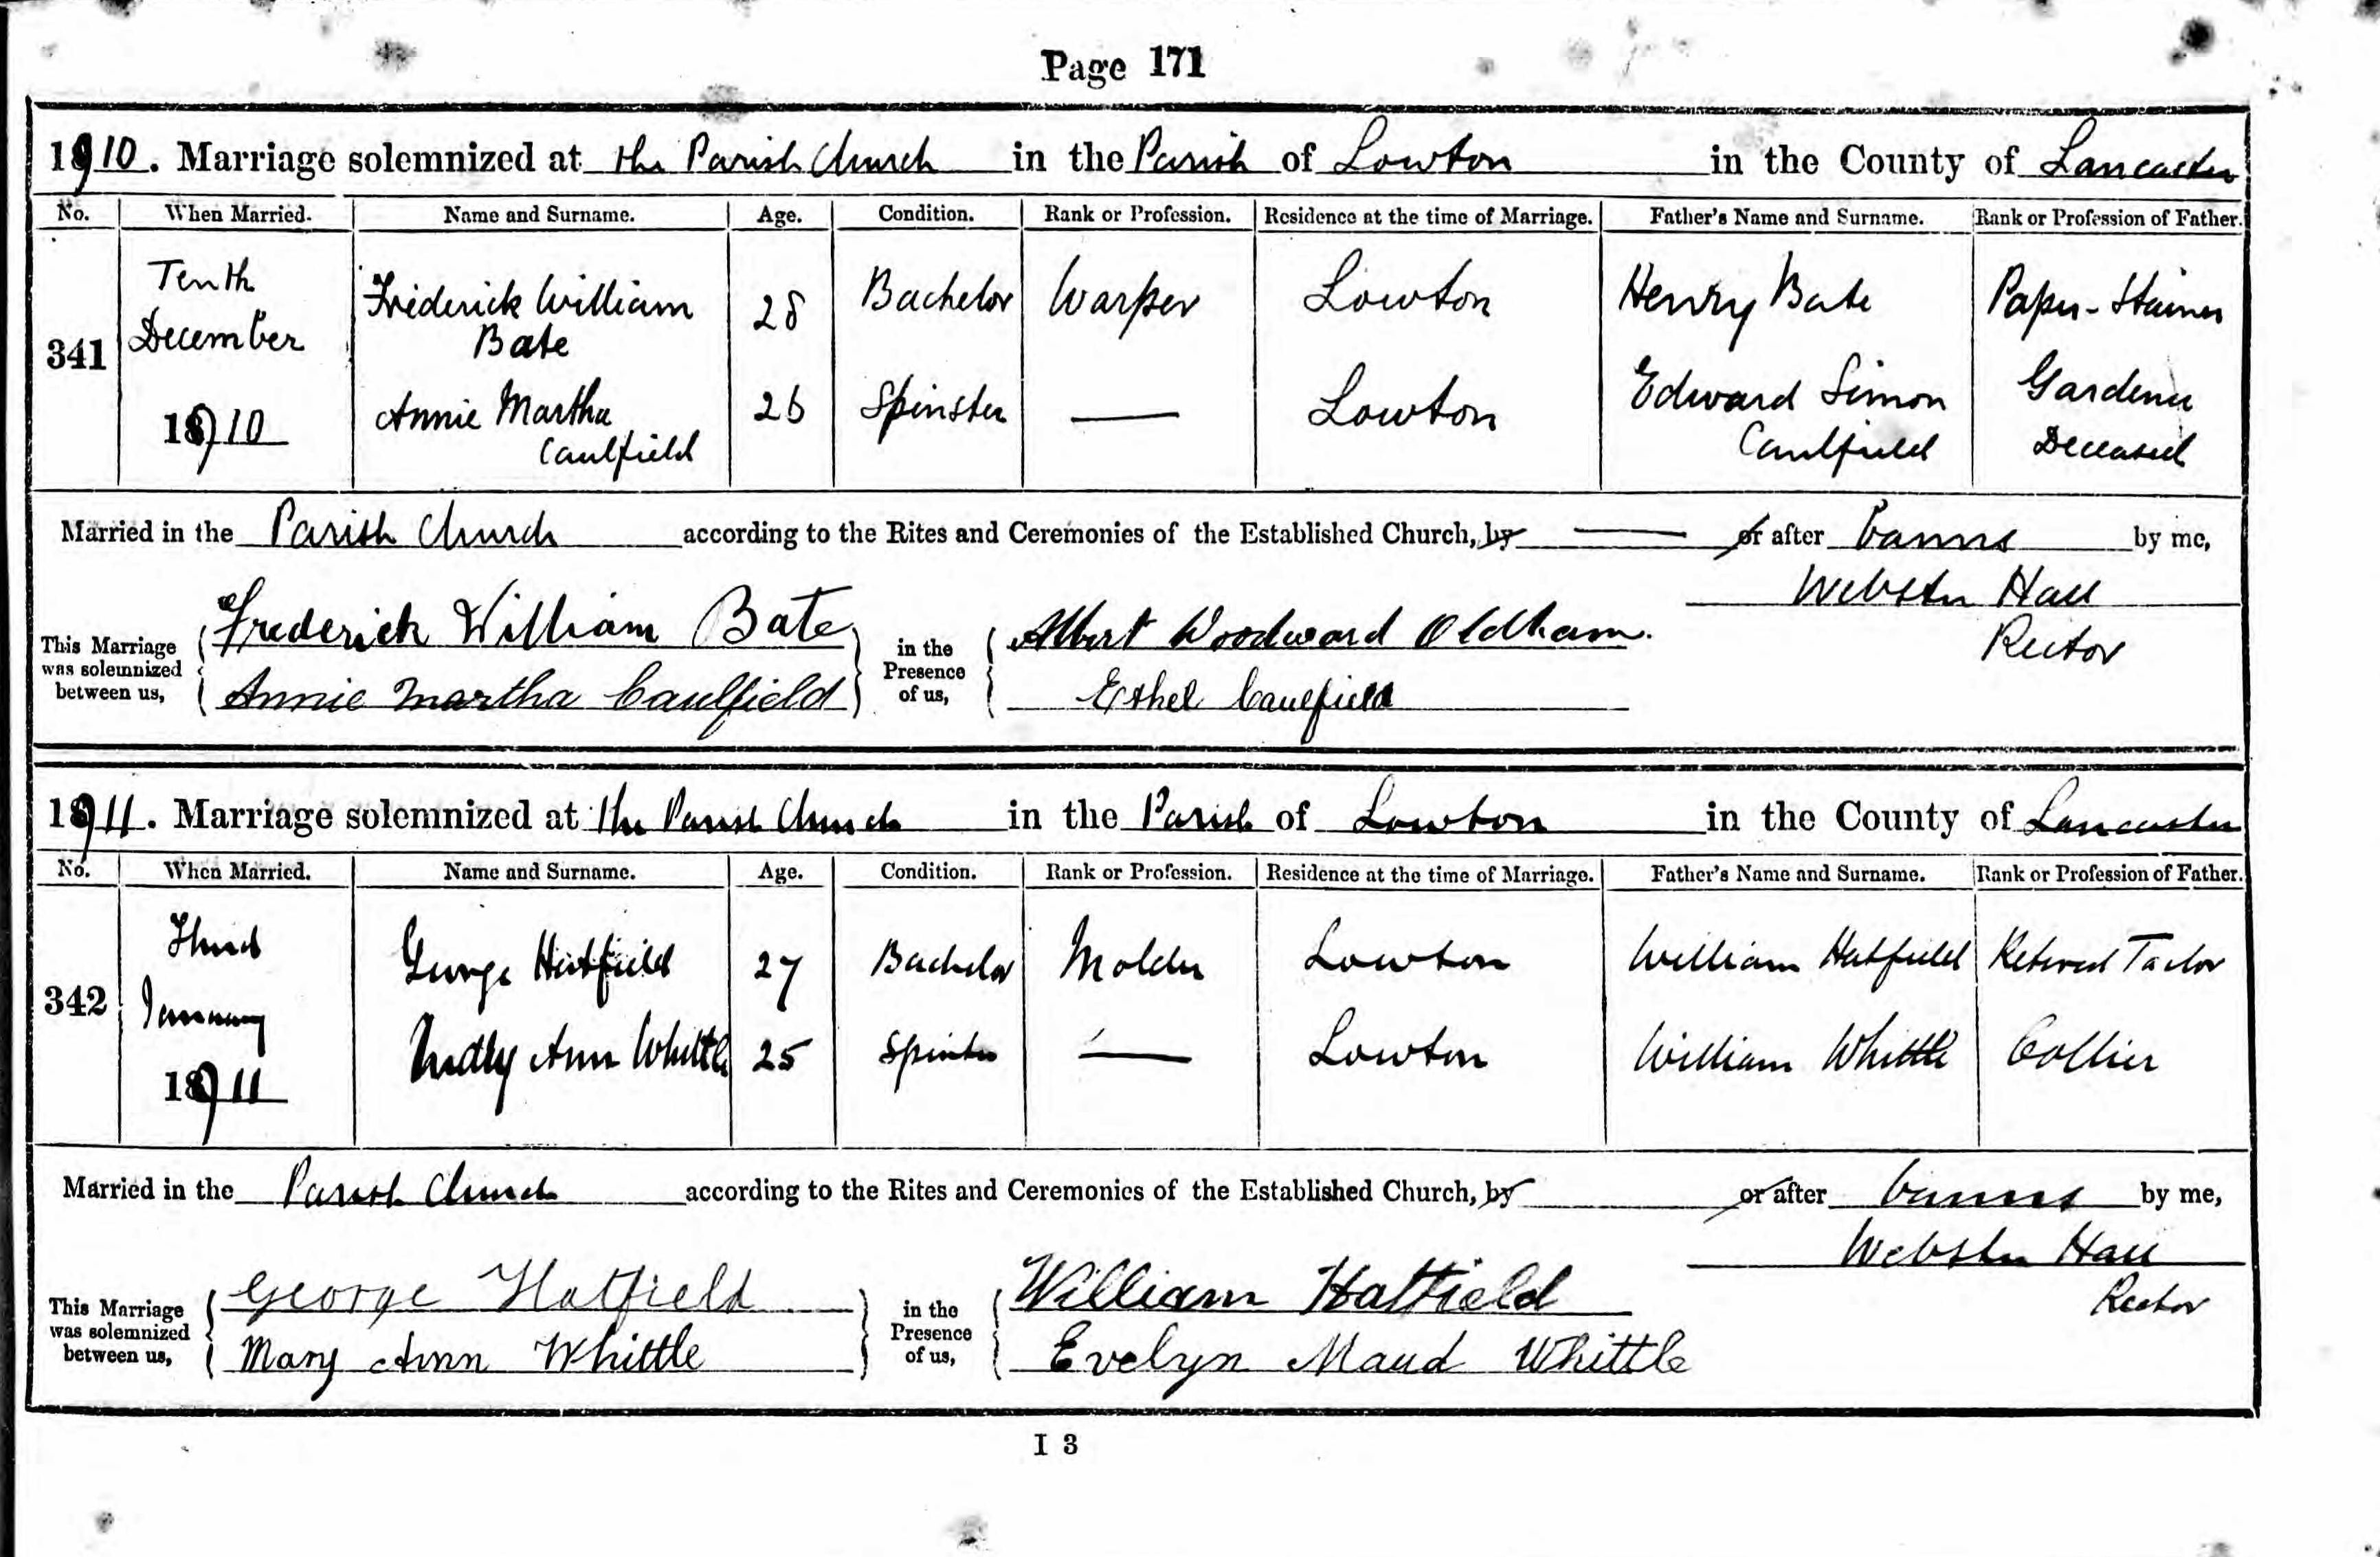 Page 171
1910. Marriage solemnized at the Parish Church in the Parish of Lowton in the County of Lancaster
No. When Married. Name and Surname. Age. Condition. Rank or Profession. Residence at the time of Marriage. Father's Name and Surname. Rank or Profession of Father.
341 Tenth December 1910 Frederick William Bate 28 Bachelor Warper Lowton Henry Bate Paper-Stainer
Annie Martha Caulfield 26 Spinster — Lowton Edward Simon Caulfield Gardener Deceased
Married in the Parish Church according to the Rites and Ceremonies of the Established Church, by — or after Banns by me,
Webster Hall
Rector
This Marriage was solemnized between us, Frederick William Bate in the Presence of us, Albert Woodward Oldham.
Annie Martha Caulfield Ethel Caulfield
1911. Marriage solemnized at the Parish Church in the Parish of Lowton in the County of Lancaster
No. When Married. Name and Surname. Age. Condition. Rank or Profession. Residence at the time of Marriage. Father's Name and Surname. Rank or Profession of Father.
342 Third January 1911 George Hatfield 27 Bachelor Molder Lowton William Hatfield Retired Tailor
Ann Whittle 25 Spinster — Lowton William Whittle Collier
Married in the Parish Church according to the Rites and Ceremonies of the Established Church, by or after Banns by me,
Webster Hall
Rector
This Marriage was solemnized between us, George Hatfield in the Presence of us, William Hatfield
Mary Ann Whittle Evelyn Maud Whittle
I 3